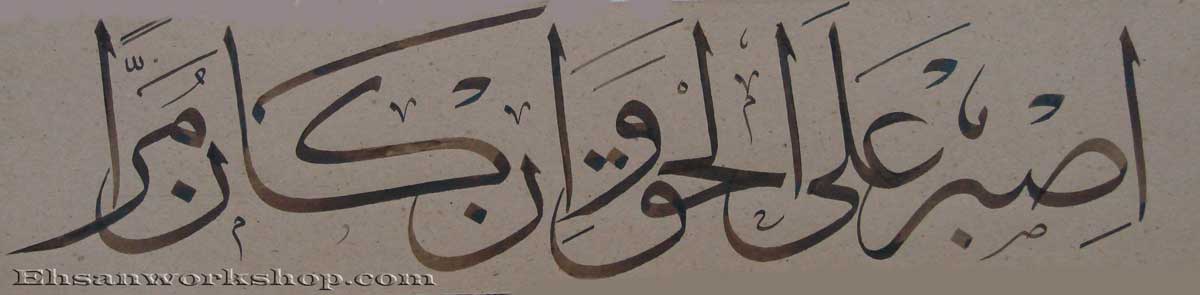 اِصْبِرْ عَلَى الحَقِّ وَاِنْ كَانَ مُرًّا
Ehsanworkshop.com